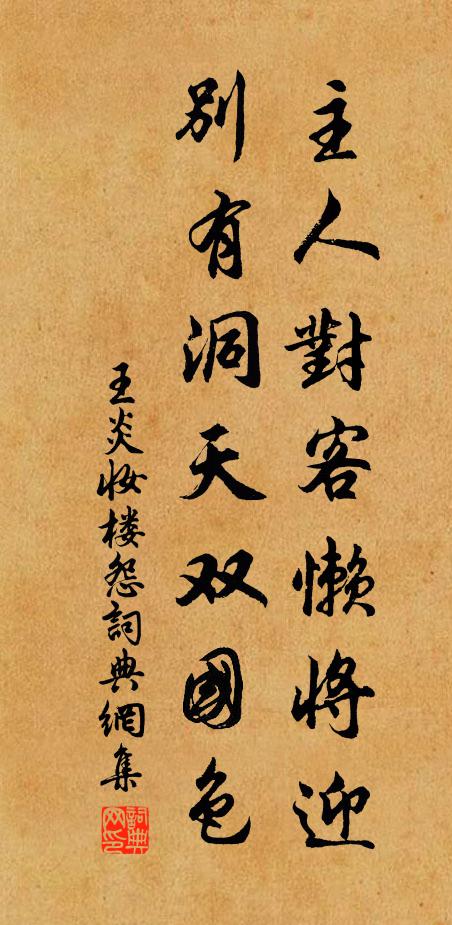 主人對客懶將迎
別有洞天双國色
王炎妆楼怨詞典網集
詞典
网印